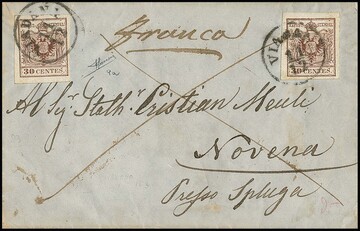 30 CENTES
Franca
30 CENTES
Al Sigr. Stath.r Cristian Meuli
Novena
Presso Spluga